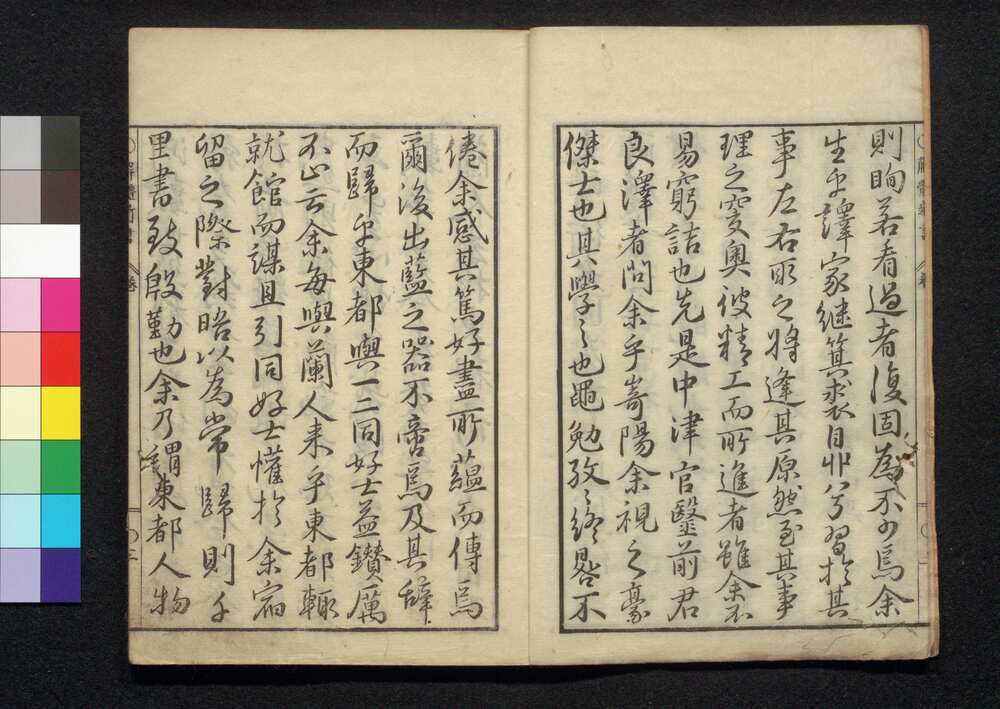 則眴若看過者復固為不少焉余
生乎譯家継箕裘自丱兮習於其
事左右取之将逢其原然至其事
理之变奥彼精工而所進者雖余不
易窮詰也先是中津官毉前君
良澤者問余乎嵜陽余視之豪
傑士也其學之也黽勉孜〻終晷不
倦余感其篤好盡所蘊而傳焉
爾後出藍之器不啻焉及其辞
而歸乎東都與一二同好士益鑚厲
不止云余每與蘭人来乎東都輙
就館而謀且引同好士懽於余宿
留之際對晤以為常歸則千
里書致殷勤也余乃謂東都人物
解體新書 卷